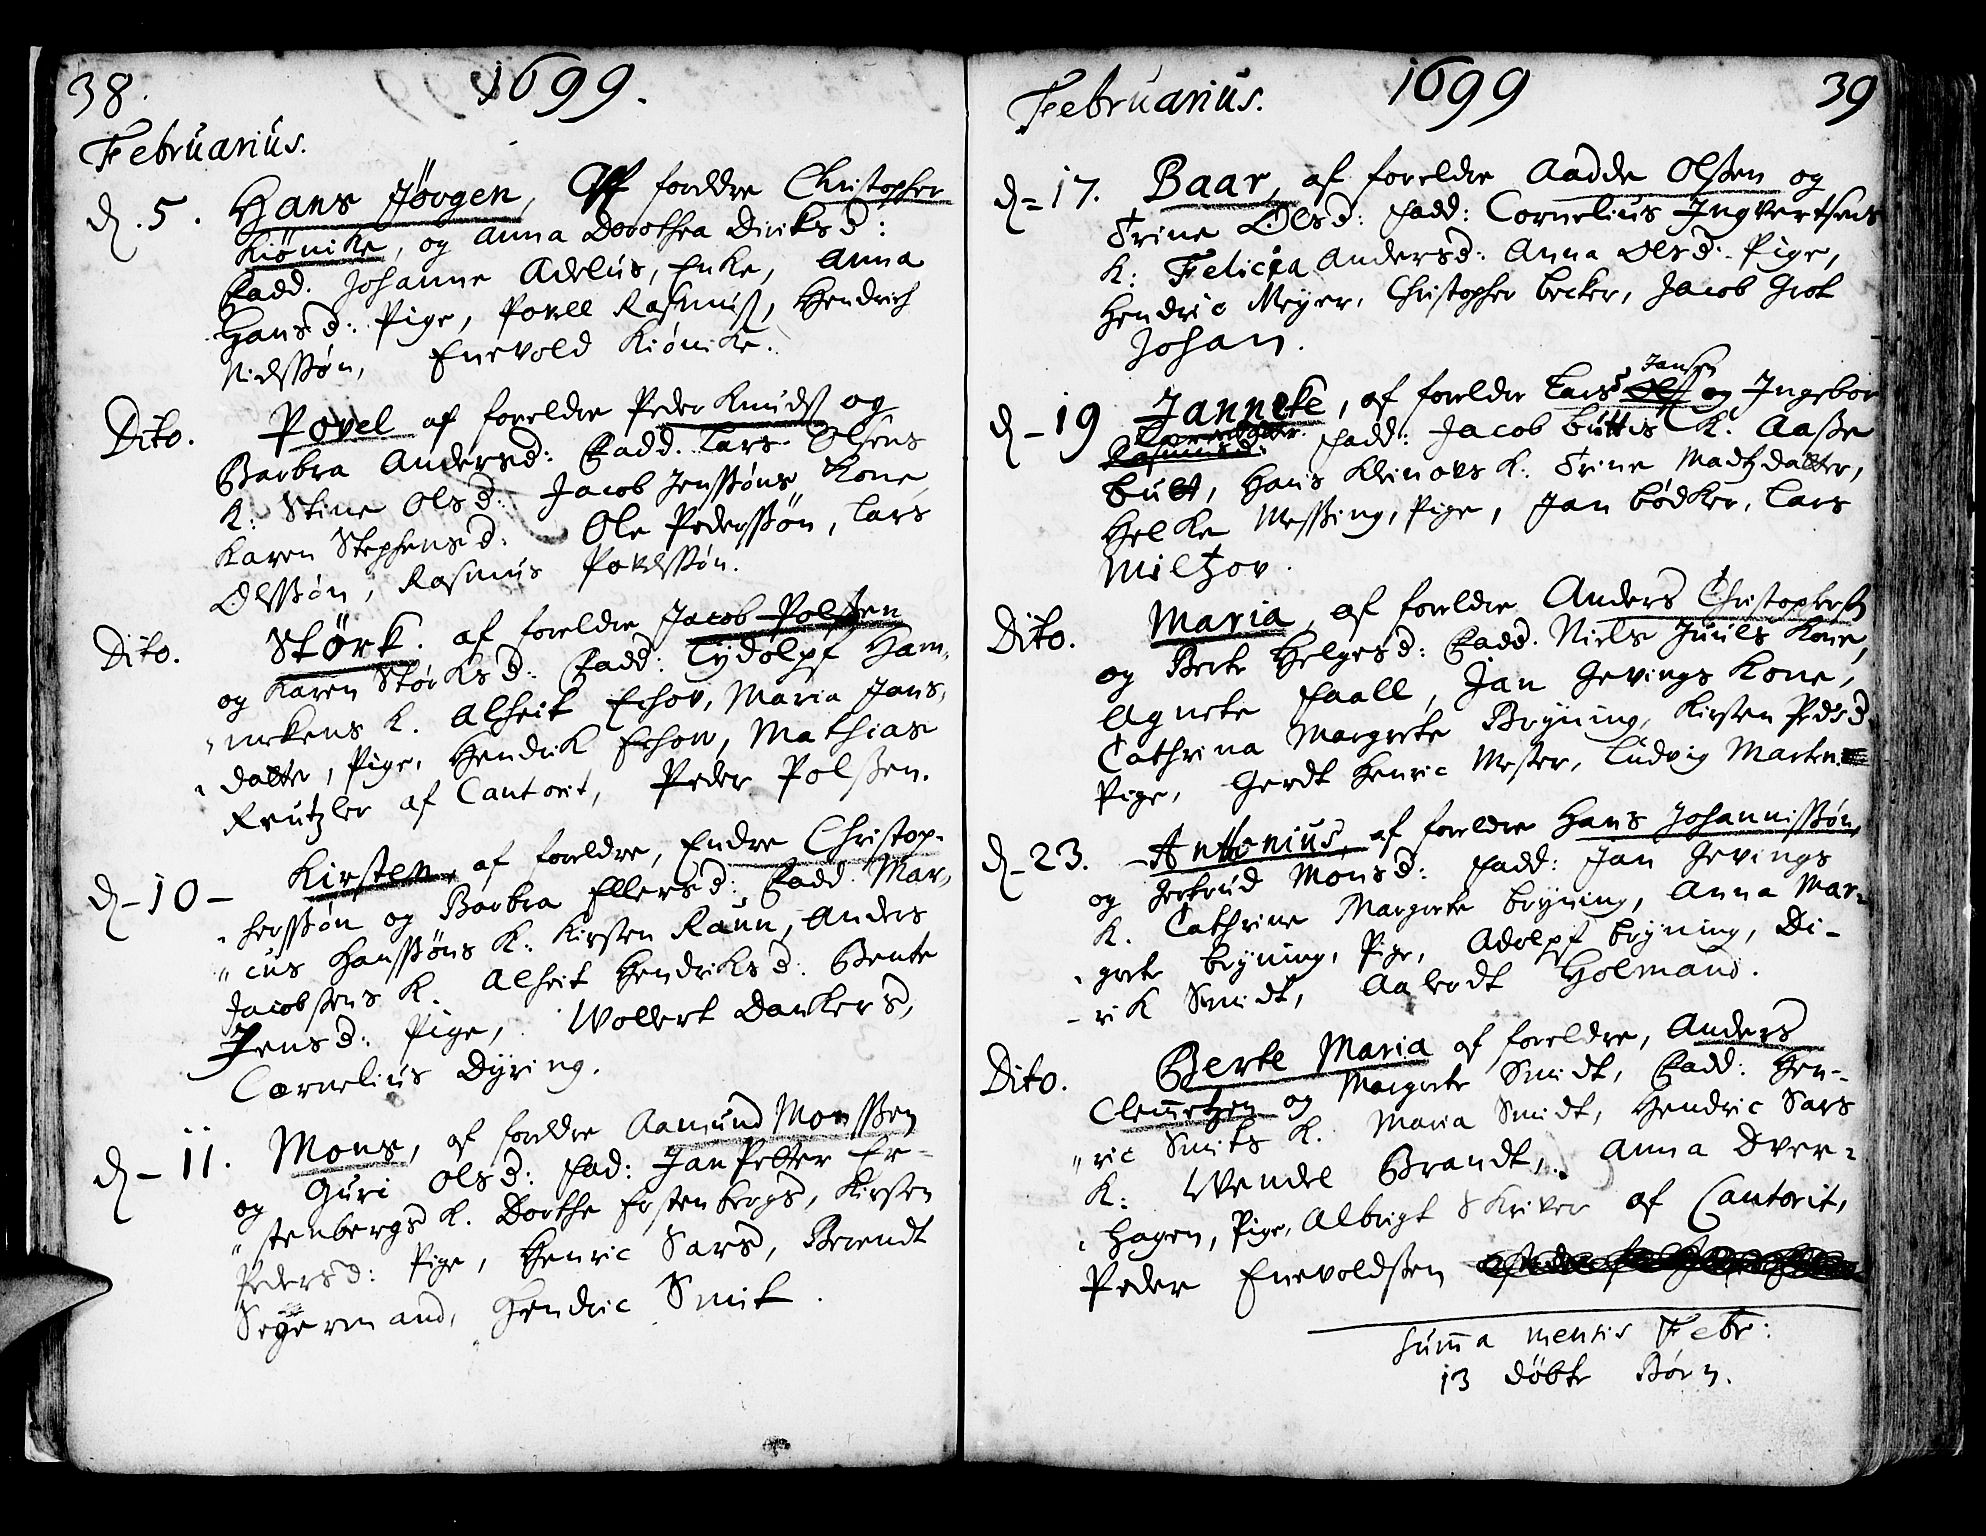 38. 1699.
Februarius.
d. 5. Hans Jørgen, Aff foreldre Christopher
Kiønike, og Anna Dorothea Diriksd:
Fadd. Johanne Adelus, Enke, Anna
Hansd: Pige, Povell Rasmuss, Hendrich
Nielssøn, Enevold Kiønike.
Dito. Povel af foreldre Peder Knudss og
Barbra Andersd: Fadd. Lars Olsens
K: Stine Olsd: Jacob Jenssøns Kone
Karen Stephensd: Ole Pederssøn, Lars
Olssøn, Rasmus Povelssøn.
Dito. Størk. af foreldre Jacob Polssen
og Karen Størksd: Fadd: Tydolph Ham,
"mekens K. Alheit Echov, Maria Jans,
"datter, Pige, Hendrik Echow, Mathias
Kreutzler af Cantorit, Peder Polssen.
d - 10 - Kirsten, af foreldre, Endre Christop-
"herssøn og Barbra Ellersd: Fadd. Mar,
"cus Hanssøns K: Kirsten Raun, Anders
Jacobssens K. Alheit Hendriksd: Bente
Jensd: Pige, Wollert Dankers,
Cornelius Dyring.
d - 11. Mons, af foreldre Aamund Monssen
og Guri Olsd: Fad: Jan Petter Er-
"stenbergs K. Dorthe Erstenbergs, Kirsten
Pedersd: Pige, Henric Sars, Berendt
Segermand, Hendric Smit.
Februarius. 1699 39
d = 17. Baar, af foreldre Aadde Olssen og
Trine Olsd: Fadd: Cornelius Ingvertsens
K: Felicia Andersd: Anna Olsd: Pige,
Hendric Meyer, Christopher Becker, Jacob Grot
Johan.
Jansen
d - 19 Janneke, af foreldre Lars Olss og Ingebor
Rasmusd: Fadd: Jacob Buttis K. Aasse
Butt, Hans Kleinovs K. Trine Madtzdatter,
Helke Messing, Pige, Jan Bødker, Lars
Miltzov.
Dito. Maria, af foreldre Anders Christopherss
og Berte Helgesd: Fadd. Niels Juuls Kone,
Agnete Faall, Jan Gevings Kone,
Cathrina Margrete Bryning, Kirsten Pedsd
Pige, Gerdt Henric Mester, Ludvig Marten
d - 23. Anttonius, af foreldre Hans Johannissøn,
og Gertrud Monsd: Fadd: Jan Gevings
K. Cathrine Margrete Bryning, Anna Mar-
"grete Bryning, Pige, Adolph Bryning, Di-
-rik Smidt, Aalerdt Holmand.
Dito. Berte Maria af foreldre, Anders
Clemetzen og Margrete Smidt, Fadd: Hen-
"ric Smits K. Maria Smidt, Hendric Sars
K: Wendel Brandt, Anna Dver-
"hagen, Pige, Albrigt Skriver af Cantorit,
Peder Enevoldssen
Summa mensis Febr:
13 døbte Børn.